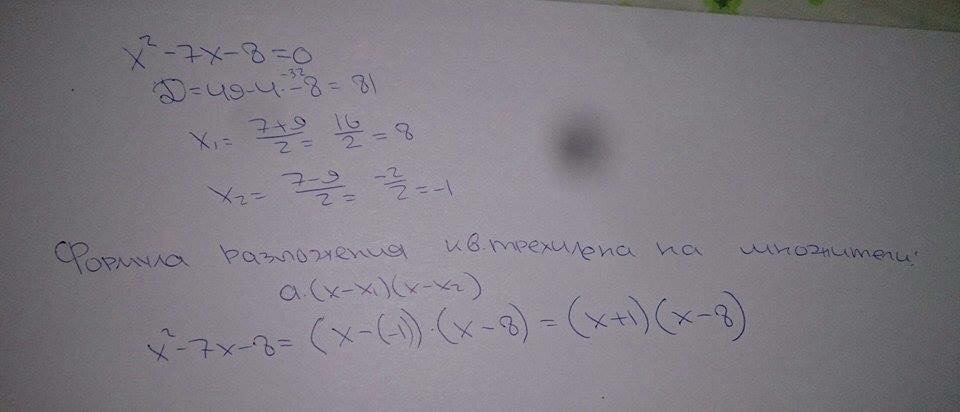 x² - 7x - 8 = 0
D = 49 - 4 · -8 = 81
-32
x₁ = 7+9/2 = 16/2 = 8
x₂ = 7-9/2 = -2/2 = -1
Формула разложения кв. трехчлена на множители:
a·(x-x₁)(x-x₂)
x² - 7x - 8 = (x-(-1))·(x-8) = (x+1)(x-8)